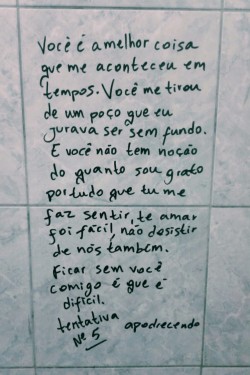 Você é a melhor coisa
que me aconteceu em
tempos. Você me tirou
de um poço que eu
jurava ser sem fundo.
E você não tem noção
do quanto sou grato
por tudo que tu me
faz sentir, te amar
foi fácil, não desistir
de nós também.
Ficar sem você
comigo é que é
difícil.
tentativa apodrecendo
Nº 5